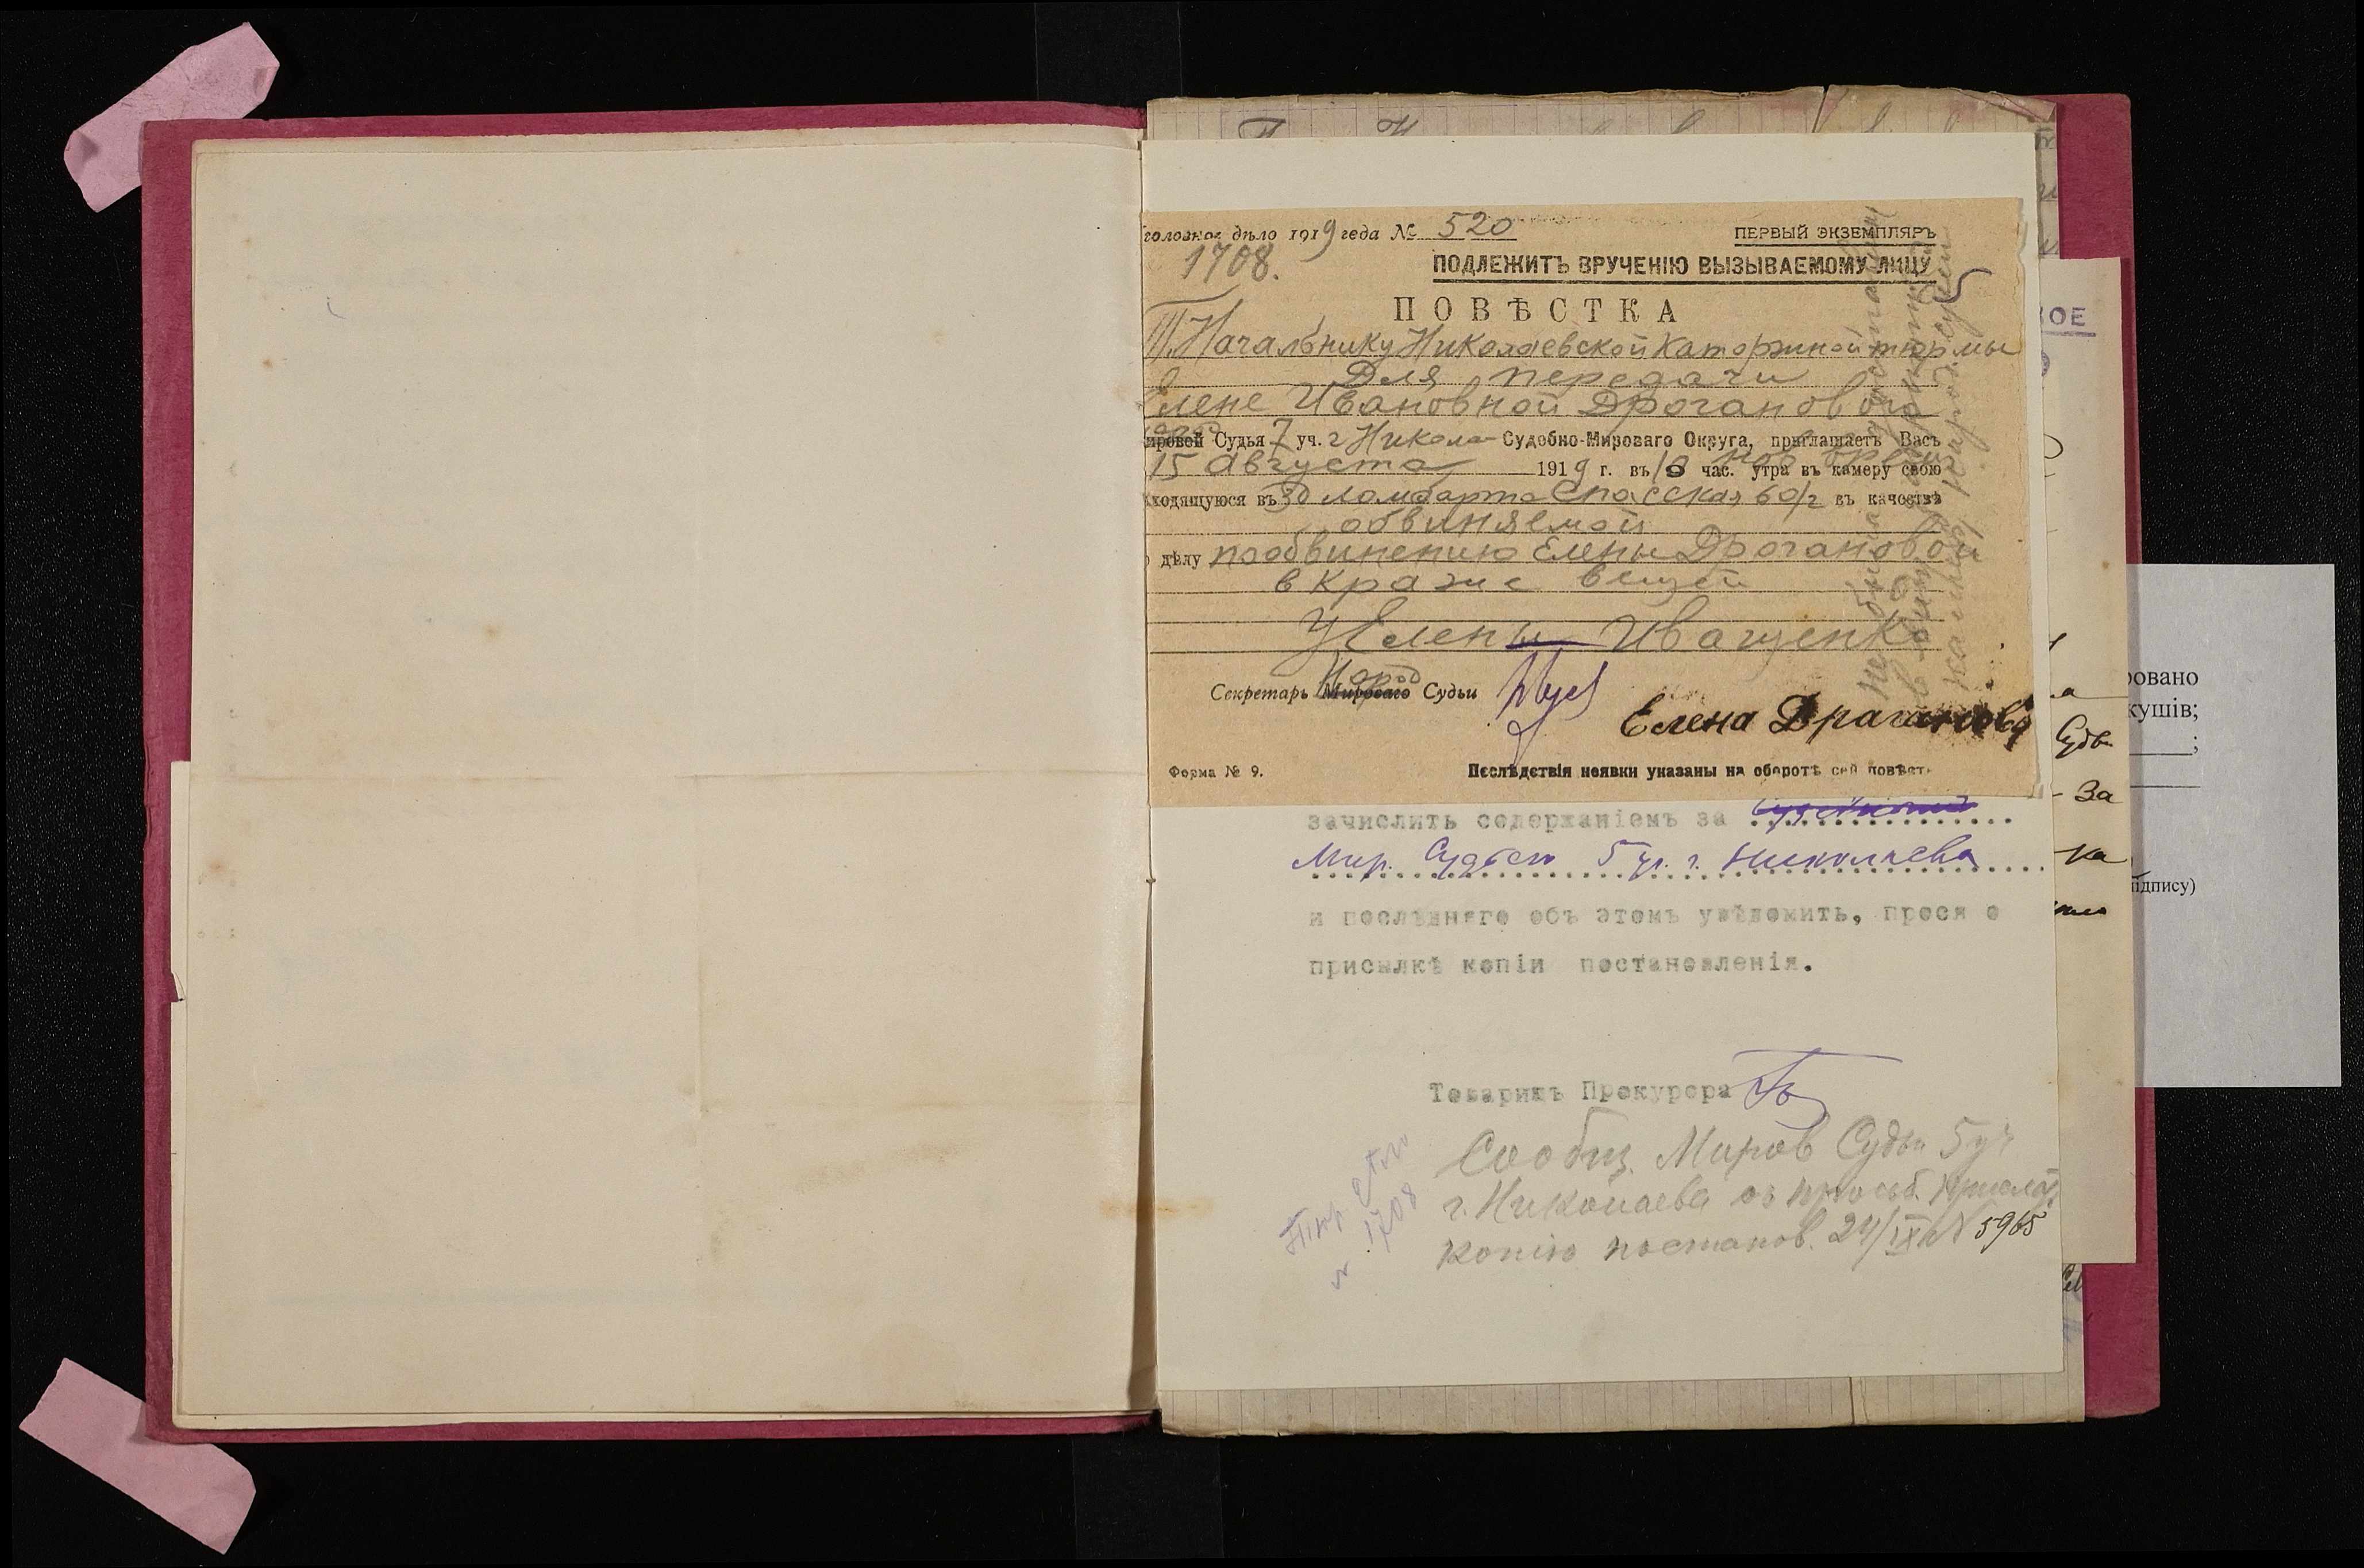 головное дѣло 1919 года № 520
1708.
ПЕРВЫЙ ЭКЗЕМПЛЯРЪ
ПОДЛЕЖИТЪ ВРУЧЕНІЮ ВЫЗЫВАЕМОМУ ЛИЦУ
ПОВѢСТКА
Т. Начальнику Николаевской каторжной тюрмы
Для передачи
Елене Ивановной Дрогановой
ировой Судья 7 уч. г Никола Судебно-Мироваго Округа, приглашаетъ Васъ
15 Августа 1919 г. въ 10 час. утра въ камеру свою
ходящуюся въ зд ломбарта Спасская 60/2 въ качествѣ
обвиняемой
дѣлу по обвинению Елены Дрогановой
в краже вещей
У Елены Иващенко
Народ
Секретарь Мироваго Судьи
Елена Драганова
Форма № 9.
Послѣдствія неявки указаны на оборотѣ сей повѣст
зачислить содержаніемъ за
Мир. Судьею 5 уч. г. Николаева
и послѣдняго объ этомъ увѣдомить, прося о
присылкѣ копіи постановленія.
Товарищъ Прокурора
Сообщ. Миров Судьи 5 уч
г. Николаева съ просьб.
копію постанов. 24/IX № 5965
1708
ОЕ
овано
кушів;
;
Судь
За
ка
ідпису)